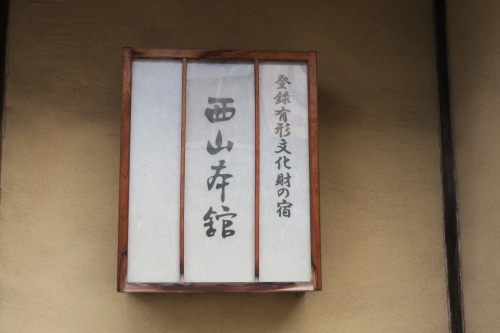 登録有形文化財の宿
西山本館